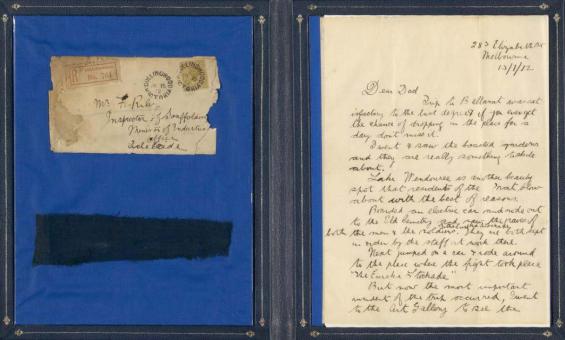 No. 701
COLLINGWOOD
VICTORIA
Mr. F. Riley
Inspector of Scaffolding
Minister of Industry
Office
Adelaide
283 Elizabeth St
Melbourne
13/1/12
Dear Dad
Trip to Ballarat was sat
isfactory to the last degree if you ever get
the chance of dropping in the place for a
day don't miss it.
I went & saw the boasted gardens
and they are really something to skite
about.
Lake Wendouree is another beauty
spot that residents of the Most blow
about with the best of reasons.
Boarded an electric car and rode out
to the Old Cemetery and saw the graves of
both the men & the soldiers. They are both kept
in order by the staff at work there.
Next jumped on a car & rode around
to the place where the fight took place
"The Eureka Stockade"
But now the most important
incident of the trip occurred, I went
to the Art Gallery to see the